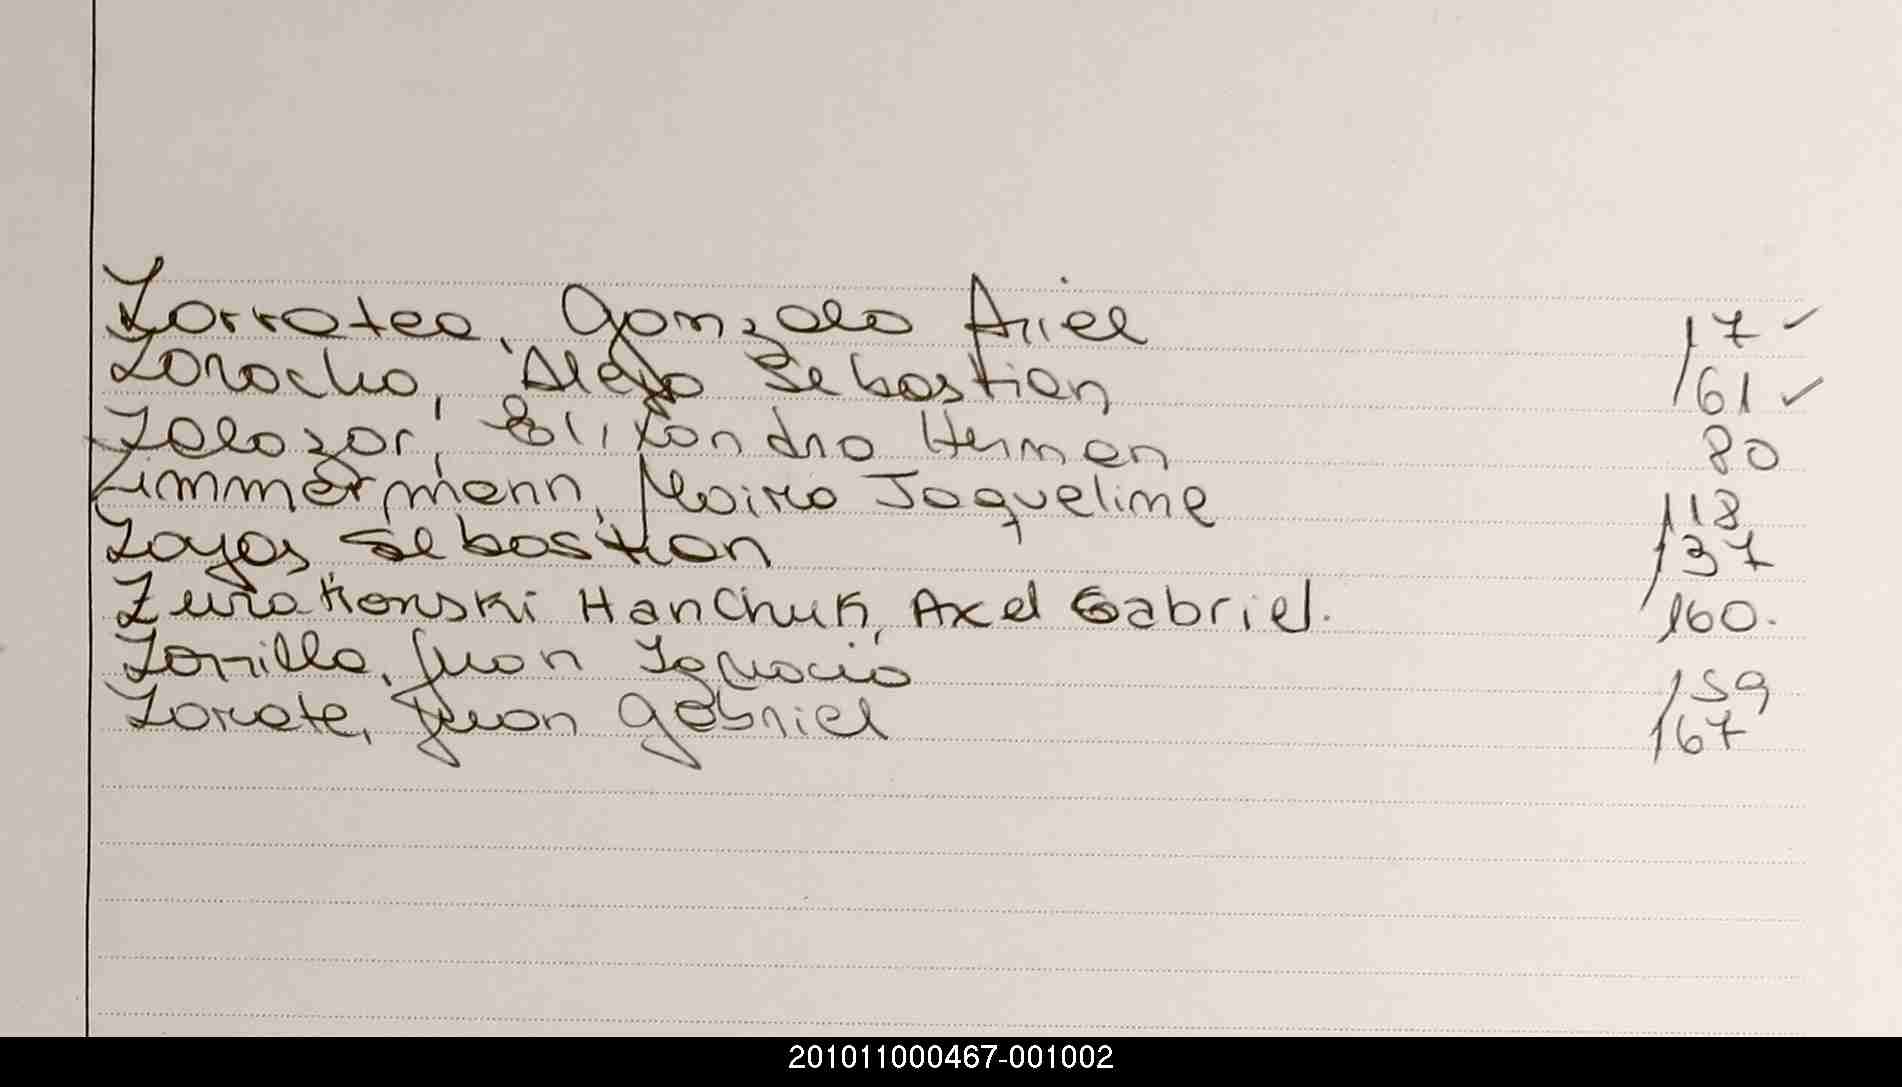 Zarratea, Gonzalo Ariel 17 ✓
Zaracho, Alejo Sebastian 61 ✓
Zalazar, Hernan 80
Zimmermann, Maira Jaqueline 118
Zayas Sebastian 137
Zurakonski Hanchuk, Axel Gabriel. 160.
Zorrilla, Juan Ignacio 159
Zarate, Juan Gabriel 167
201011000467-001002